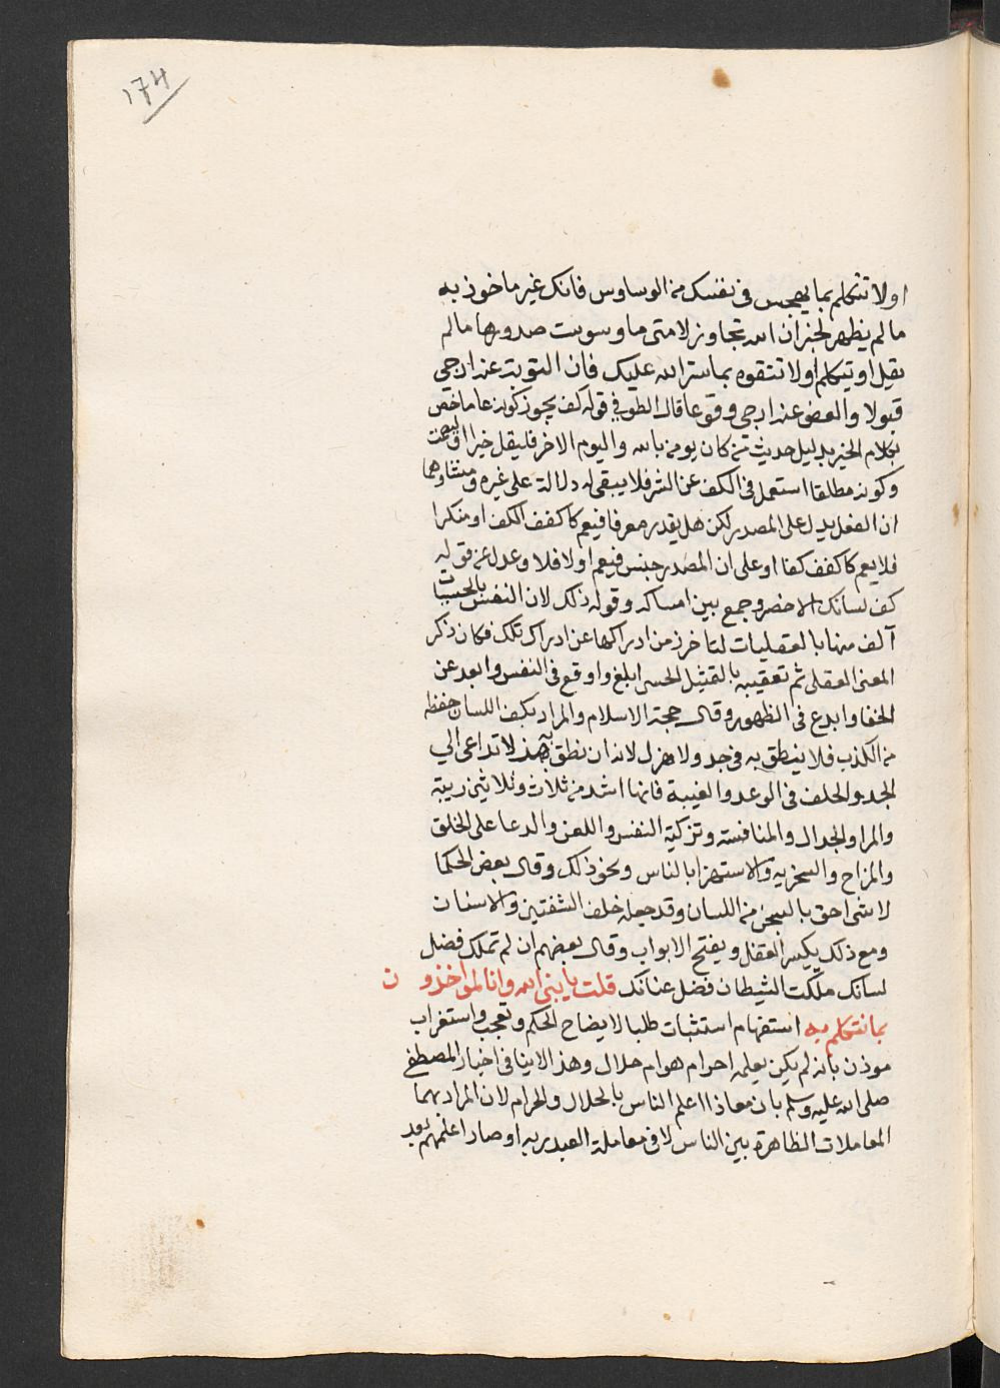 ١٧٤
اولا تتكلم بما يهجس فى نفسك من الوساوس فانك غير ماخوذ به
ما لم يظهر لخبر ان الله تجاوز لامتى ما وسوست صدورها ما لم
تقل او تتكلم اولا تتفوه بما ستر الله عليك فان التوبة عنه ارجى
قبولا والعفو عنه ارجى وقوعا قال الطوفي قوله كف يجوز كونه عاما خص
بكلام الخير بدليل حديث من كان يومن بالله واليوم الاخر فليقل خيرا او ليصمت
وكونه مطلقا استعمل فى الكف عن الشر فلا يبقى له دلالة على غيره ومنشاوهما
ان الفعل يدل على المصدر لكن هل يقدر معرفا فيعم كاكفف الكف او منكرا
فلا يعم كاكفف كفا او على ان المصدر جنس فيعم اولا فلا وعدل عن قوله
كف لسانك الاخصر وجمع بين امساكه وقوله ذلك لان النفس بالحسيات
آلف منها بالعقليات لتاخر زمن ادراكها عن ادراك تلك فكان ذكر
المعنى العقلى ثم تعقيبه بالتمثيل الحسى ابلغ واوقع فى النفس وابعد عن
الخفا وابدع فى الظهور وقال حجة الاسلام والمراد بكف اللسان حفظه
من الكذب فلا ينطق به فى جد ولا هزل لانه ان نطق به هزلا تداعى الي
الجد والخلف فى الوعد والغيبة فانها اشد من ثلاث وثلاثين زنية
والمرا والجدال والمنافسة وتزكية النفس واللعن والدعا على الخلق
والمزاح والسخرية والاستهزا بالناس ونحو ذلك وقال بعض الحكما
لا شى احق بالسجن من اللسان وقد جعله خلف الشفتين والاسنان
ومع ذلك يكسر القفل ويفتح الابواب وقال بعضهم ان لم تملك فضل
لسانك ملكت الشيطان فضل عنانك قلت يا نبى الله وانا لمواخذون
بما نتكلم به استفهام استثبات طلبا لايضاح الحكم وتعجب واستغراب
موذن بانه لم يكن يعلمه احرام هو ام حلال وهذا لاينافى اخبار المصطفى
صلى الله عليه وسلم بان معاذا اعلم الناس بالحلال والحرام لان المراد بهما
المعاملات الظاهرة بين الناس لا فى معاملة العبد ربه او صار اعلمهم بعد